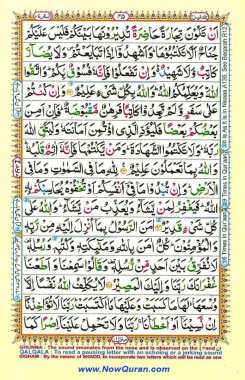 تلك الرسل ٣
٣٥
البقرة ٢
أَنْ تَكُونَ تِجَارَةً حَاضِرَةً تُدِيرُونَهَا بَيْنَكُمْ فَلَيْسَ عَلَيْكُمْ
جُنَاحٌ أَلَّا تَكْتُبُوهَا وَأَشْهِدُوا إِذَا تَبَايَعْتُمْ وَلَا يُضَارَّ
كَاتِبٌ وَلَا شَهِيدٌ وَإِنْ تَفْعَلُوا فَإِنَّهُ فُسُوقٌ بِكُمْ وَاتَّقُوا
اللَّهَ وَيُعَلِّمُكُمُ اللَّهُ وَاللَّهُ بِكُلِّ شَيْءٍ عَلِيمٌ وَإِنْ كُنْتُمْ
عَلَىٰ سَفَرٍ وَلَمْ تَجِدُوا كَاتِبًا فَرِهٰنٌ مَقْبُوضَةٌ فَإِنْ أَمِنَ
بَعْضُكُمْ بَعْضًا فَلْيُؤَدِّ الَّذِي اؤْتُمِنَ أَمَانَتَهُ وَلْيَتَّقِ اللَّهَ
رَبَّهُ وَلَا تَكْتُمُوا الشَّهَادَةَ وَمَنْ يَكْتُمْهَا فَإِنَّهُ آثِمٌ قَلْبُهُ
وَاللَّهُ بِمَا تَعْمَلُونَ عَلِيمٌ لِلَّهِ مَا فِي السَّمٰوٰتِ وَمَا فِي
الْأَرْضِ وَإِنْ تُبْدُوا مَا فِي أَنْفُسِكُمْ أَوْ تُخْفُوهُ يُحَاسِبْكُمْ بِهِ
اللَّهُ فَيَغْفِرُ لِمَنْ يَشَاءُ وَيُعَذِّبُ مَنْ يَشَاءُ وَاللَّهُ عَلَىٰ
كُلِّ شَيْءٍ قَدِيرٌ آمَنَ الرَّسُولُ بِمَا أُنْزِلَ إِلَيْهِ مِنْ رَبِّهِ
وَالْمُؤْمِنُونَ كُلٌّ آمَنَ بِاللَّهِ وَمَلٰئِكَتِهِ وَكُتُبِهِ وَرُسُلِهِ
لَا نُفَرِّقُ بَيْنَ أَحَدٍ مِنْ رُسُلِهِ وَقَالُوا سَمِعْنَا وَأَطَعْنَا
غُفْرَانَكَ رَبَّنَا وَإِلَيْكَ الْمَصِيرُ لَا يُكَلِّفُ اللَّهُ نَفْسًا إِلَّا
وُسْعَهَا لَهَا مَا كَسَبَتْ وَعَلَيْهَا مَا اكْتَسَبَتْ رَبَّنَا لَا تُؤَاخِذْنَا
إِنْ نَسِينَا أَوْ أَخْطَأْنَا رَبَّنَا وَلَا تَحْمِلْ عَلَيْنَا إِصْرًا كَمَا
GHUNNA : The sound emanates from the nose and is observed on the
QALQALA : To read a pausing letter with an echoing or a jerking sound
IDGHAM : By the means of SHADD, to incorporate two letters which will be read as one
www.NowQuran.com